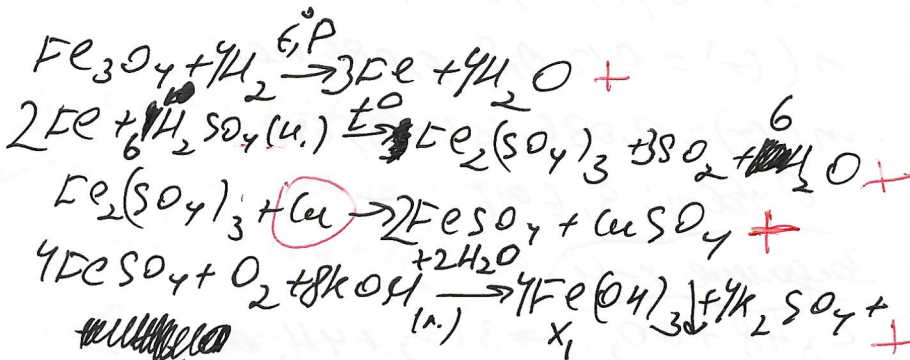 t°, P
Fe₃O₄ + 4H₂ → 3Fe + 4H₂O +
2Fe + 6H₂SO₄(к.) t° → Fe₂(SO₄)₃ + 3SO₂ + 6H₂O +
Fe₂(SO₄)₃ + Cu → 2FeSO₄ + CuSO₄ +
4FeSO₄ + O₂ + 8KOH +2H₂O → 4Fe(OH)₃↓ + 4K₂SO₄ +
(к.) X₁ +